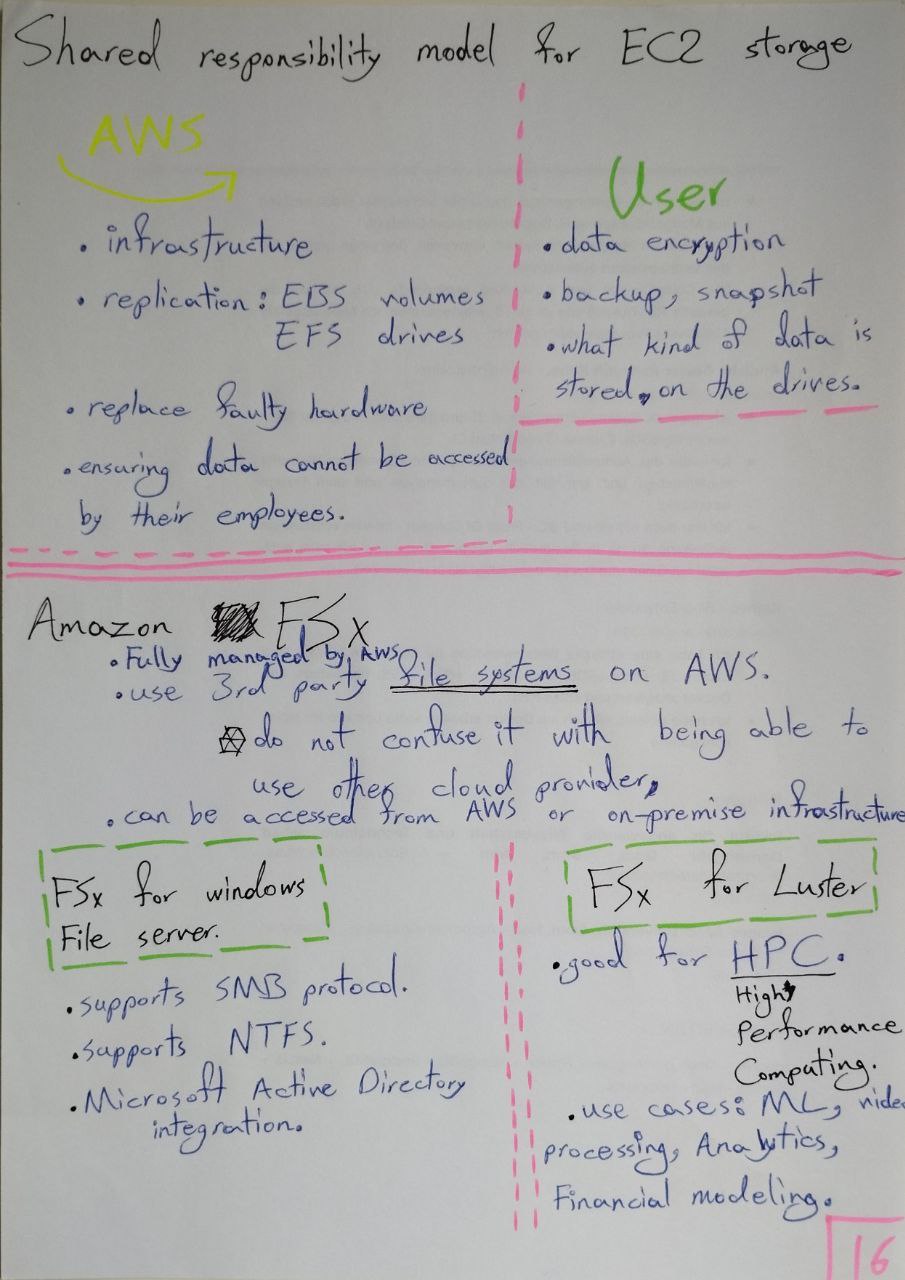 Shared responsibility model for EC2 storage
AWS
• infrastructure
• replication: EBS volumes
EFS drives
• replace faulty hardware
• ensuring data cannot be accessed
by their employees.
User
• data encryption
• backup, snapshot
• what kind of data is
stored, on the drives.
Amazon FSx
• Fully managed by AWS
• use 3rd party file systems on AWS.
do not confuse it with being able to
use other cloud provider,
• can be accessed from AWS or on-premise infrastructure
FSx for windows
File server.
• supports SMB protocol.
• supports NTFS.
• Microsoft Active Directory
integration.
FSx for Luster
• good for HPC.
High
Performance
Computing.
• use cases: ML, video
processing, Analytics,
Financial modeling.
16